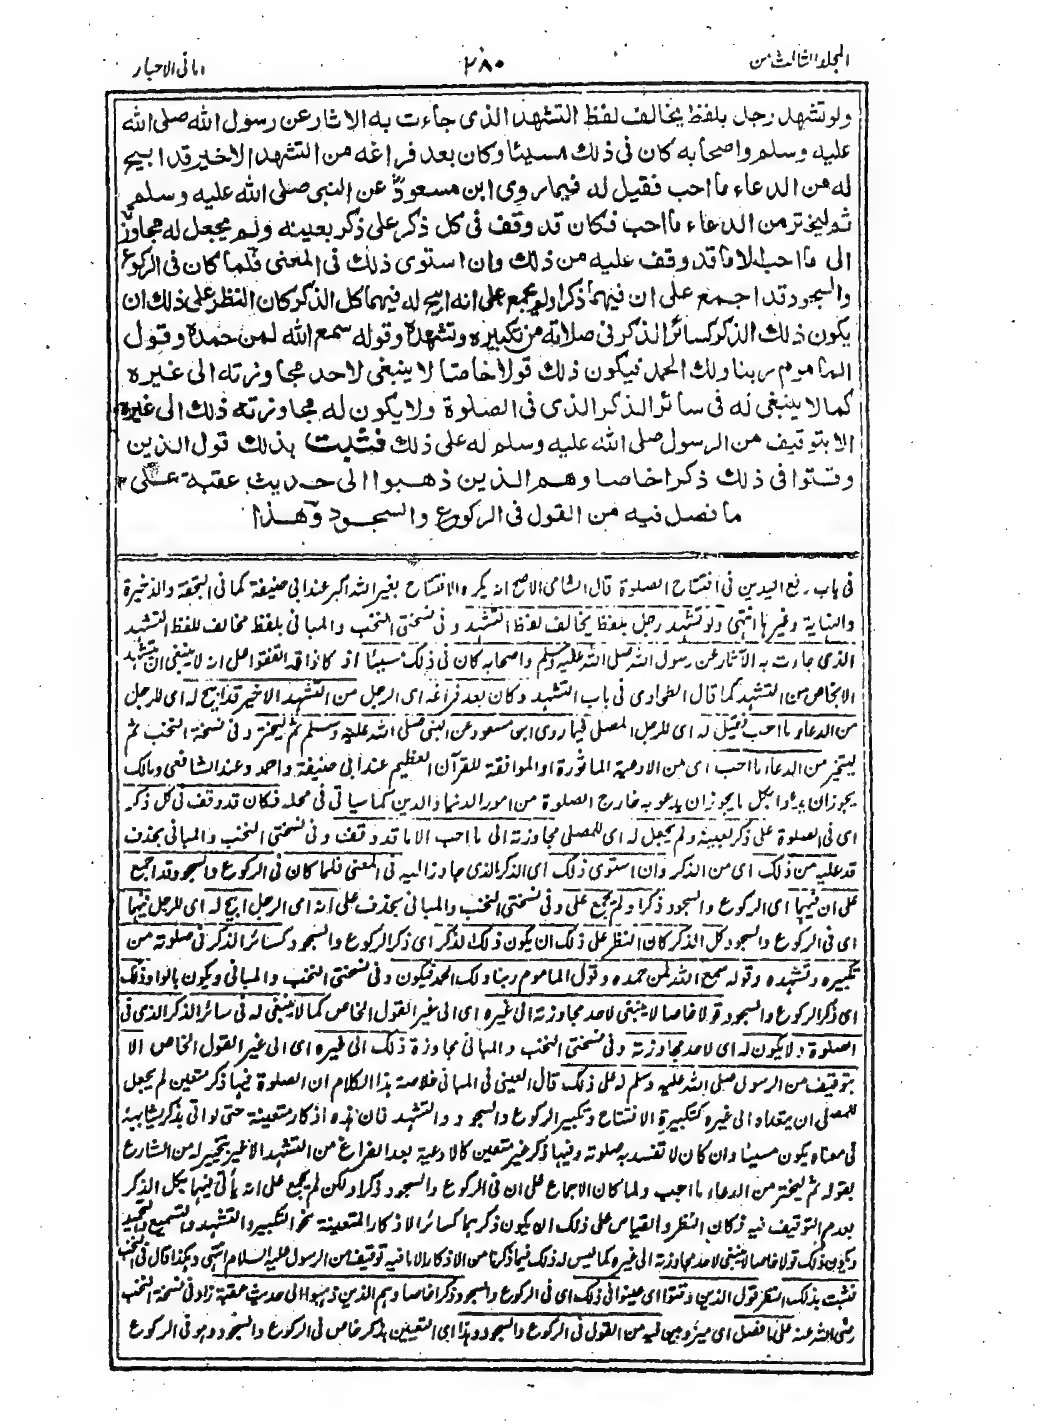 المجلد الثالث من
٢٨٠
امانى الاحبار
ولو تشهد رجل بلفظ يخالف لفظ التشهد الذى جاءت به الاثار عن رسول الله صلى الله
عليه وسلم واصحابه كان فى ذلك مسيئا وكان بعد فراغه من التشهد الاخير قد ابيح
له من الدعاء ما احب فقيل له فيما روى ابن مسعود عن النبى صلى الله عليه وسلم
ثم ليختر من الدعاء ما احب فكان قد وقف فى كل ذكر على ذكر بعينه ولم يجعل له مجاوزته
الى ما احب الا ما قد وقف عليه من ذلك وان استوى ذلك فى المعنى فلما كان فى الركوع
والسجود قد اجمع على ان فيهما ذكرا ولم يجمع على انه ابيح له فيهما كل الذكر كان النظر على ذلك ان
يكون ذلك الذكر كسائر الذكر فى صلاته من تكبيره وتشهده وقوله سمع الله لمن حمده وقول
المأموم ربنا ولك الحمد فيكون ذلك قولا خاصا لا ينبغى لاحد مجاوزته الى غيره
كما لا ينبغى له فى سائر الذكر الذى فى الصلوة ولا يكون له مجاوزته ذلك الى غيره
الا بتوقيف من الرسول صلى الله عليه وسلم له على ذلك فثبت بذلك قول الذين
وقتوا فى ذلك ذكرا خاصا وهم الذين ذهبوا الى حديث عقبة على
ما فصل فيه من القول فى الركوع والسجود وهذا
فى باب رفع اليدين فى افتتاح الصلوة قال الشامى الاصح انه يكره والافتتاح بغير الله اكبر عند ابى حنيفة كما فى التحفة والذخيرة
والنهاية وغيرها انتهى ولو تشهد رجل بلفظ يخالف لفظ التشهد وفى نسختى النخب والمبانى بلفظ مخالف للفظ التشهد
الذى جاءت به الآثار عن رسول الله صلى الله عليه وسلم واصحابه كان فى ذلك مسيئا اذ كانوا قد اتفقوا على انه لا ينبغى ان يتشهد
الا بخاص من التشهد كما قال الطحاوى فى باب التشهد وكان بعد فراغه اى الرجل من التشهد الاخير قد ابيح له اى للرجل
من الدعاء ما احب فقيل له اى للرجل المصلى فيما روى ابن مسعود عن النبى صلى الله عليه وسلم ثم ليختر وفى نسخة النخب ثم
ليتخير من الدعاء ما احب اى من الادعية الماثورة او الموافقة للقرآن العظيم عند ابى حنيفة واحمد وعند الشافعى ومالك
يجوز ان يدعوا بكل ما يجوز ان يدعو به خارج الصلوة من امور الدنيا والدين كما سياتى فى محله فكان قد وقف فى كل ذكر
اى فى الصلوة على ذكر بعينه ولم يجعل له اى للمصلى مجاوزته الى ما احب الا ما قد وقف وفى نسختى النخب والمبانى بحذف
قد عليه من ذلك اى من الذكر وان استوى ذلك اى الذكر الذى جاوز اليه فى المعنى فلما كان فى الركوع والسجود قد اجمع
على ان فيهما اى الركوع والسجود ذكرا ولم يجمع على وفى نسختى النخب والمبانى بحذف على انه اى الرجل ابيح له اى للرجل فيهما
اى فى الركوع والسجود كل الذكر كان النظر على ذلك ان يكون ذلك الذكر اى ذكر الركوع والسجود كسائر الذكر فى صلوته من
تكبيره وتشهده وقوله سمع الله لمن حمده وقول الماموم ربنا ولك الحمد فيكون وفى نسختى النخب والمبانى ويكون بالواو ذلك
اى ذكر الركوع والسجود قولا خاصا لا ينبغى لاحد مجاوزته الى غيره اى الى غير القول الخاص كما لا ينبغى له فى سائر الذكر الذى فى
الصلوة ولا يكون له اى لاحد مجاوزته وفى نسختى النخب والمبانى مجاوزة ذلك الى غيره اى الى غير القول الخاص الا
بتوقيف من الرسول صلى الله عليه وسلم له على ذلك قال العينى فى المبانى خلاصة هذا الكلام ان الصلوة فيها ذكر متعين لم يجعل
للمصلى ان يتعداه الى غيره كتكبيرة الافتتاح وتكبير الركوع والسجود والتشهد فان هذه اذكار متعينة حتى لو اتى بذكر يشابهه
فى معناه يكون مسيئا وان كان لا تفسد به صلوته وفيها ذكر غير متعين كالادعية بعد الفراغ من التشهد الاخير يتخير له من الشارع
بقوله ثم ليختر من الدعاء ما احب ولما كان الاجماع على ان فى الركوع والسجود ذكرا ولكن لم يجمع على انه يأتى فيهما بكل الذكر
بعدم التوقيف فيه فكان النظر والقياس على ذلك ان يكون ذكرهما كسائر الاذكار المتعينة نحو التكبير والتشهد والتسميع والتحميد
ويكون ذلك قولا خاصا لا ينبغى لاحد مجاوزته الى غيره كما ليس له ذلك فيما ذكرنا من الاذكار الا ما فيه توقيف من الرسول عليه السلام انتهى وهكذا قال فى النخب
فثبت بذلك النظر قول الذين وقتوا اى عينوا فى ذلك اى فى الركوع والسجود ذكرا خاصا وهم الذين ذهبوا الى حديث عقبة زاد فى نسخة النخب
رضى الله عنه على ما فصل اى ميز وبين فيه من القول فى الركوع والسجود وهذا اى التعيين بذكر خاص فى الركوع والسجود وهو فى الركوع